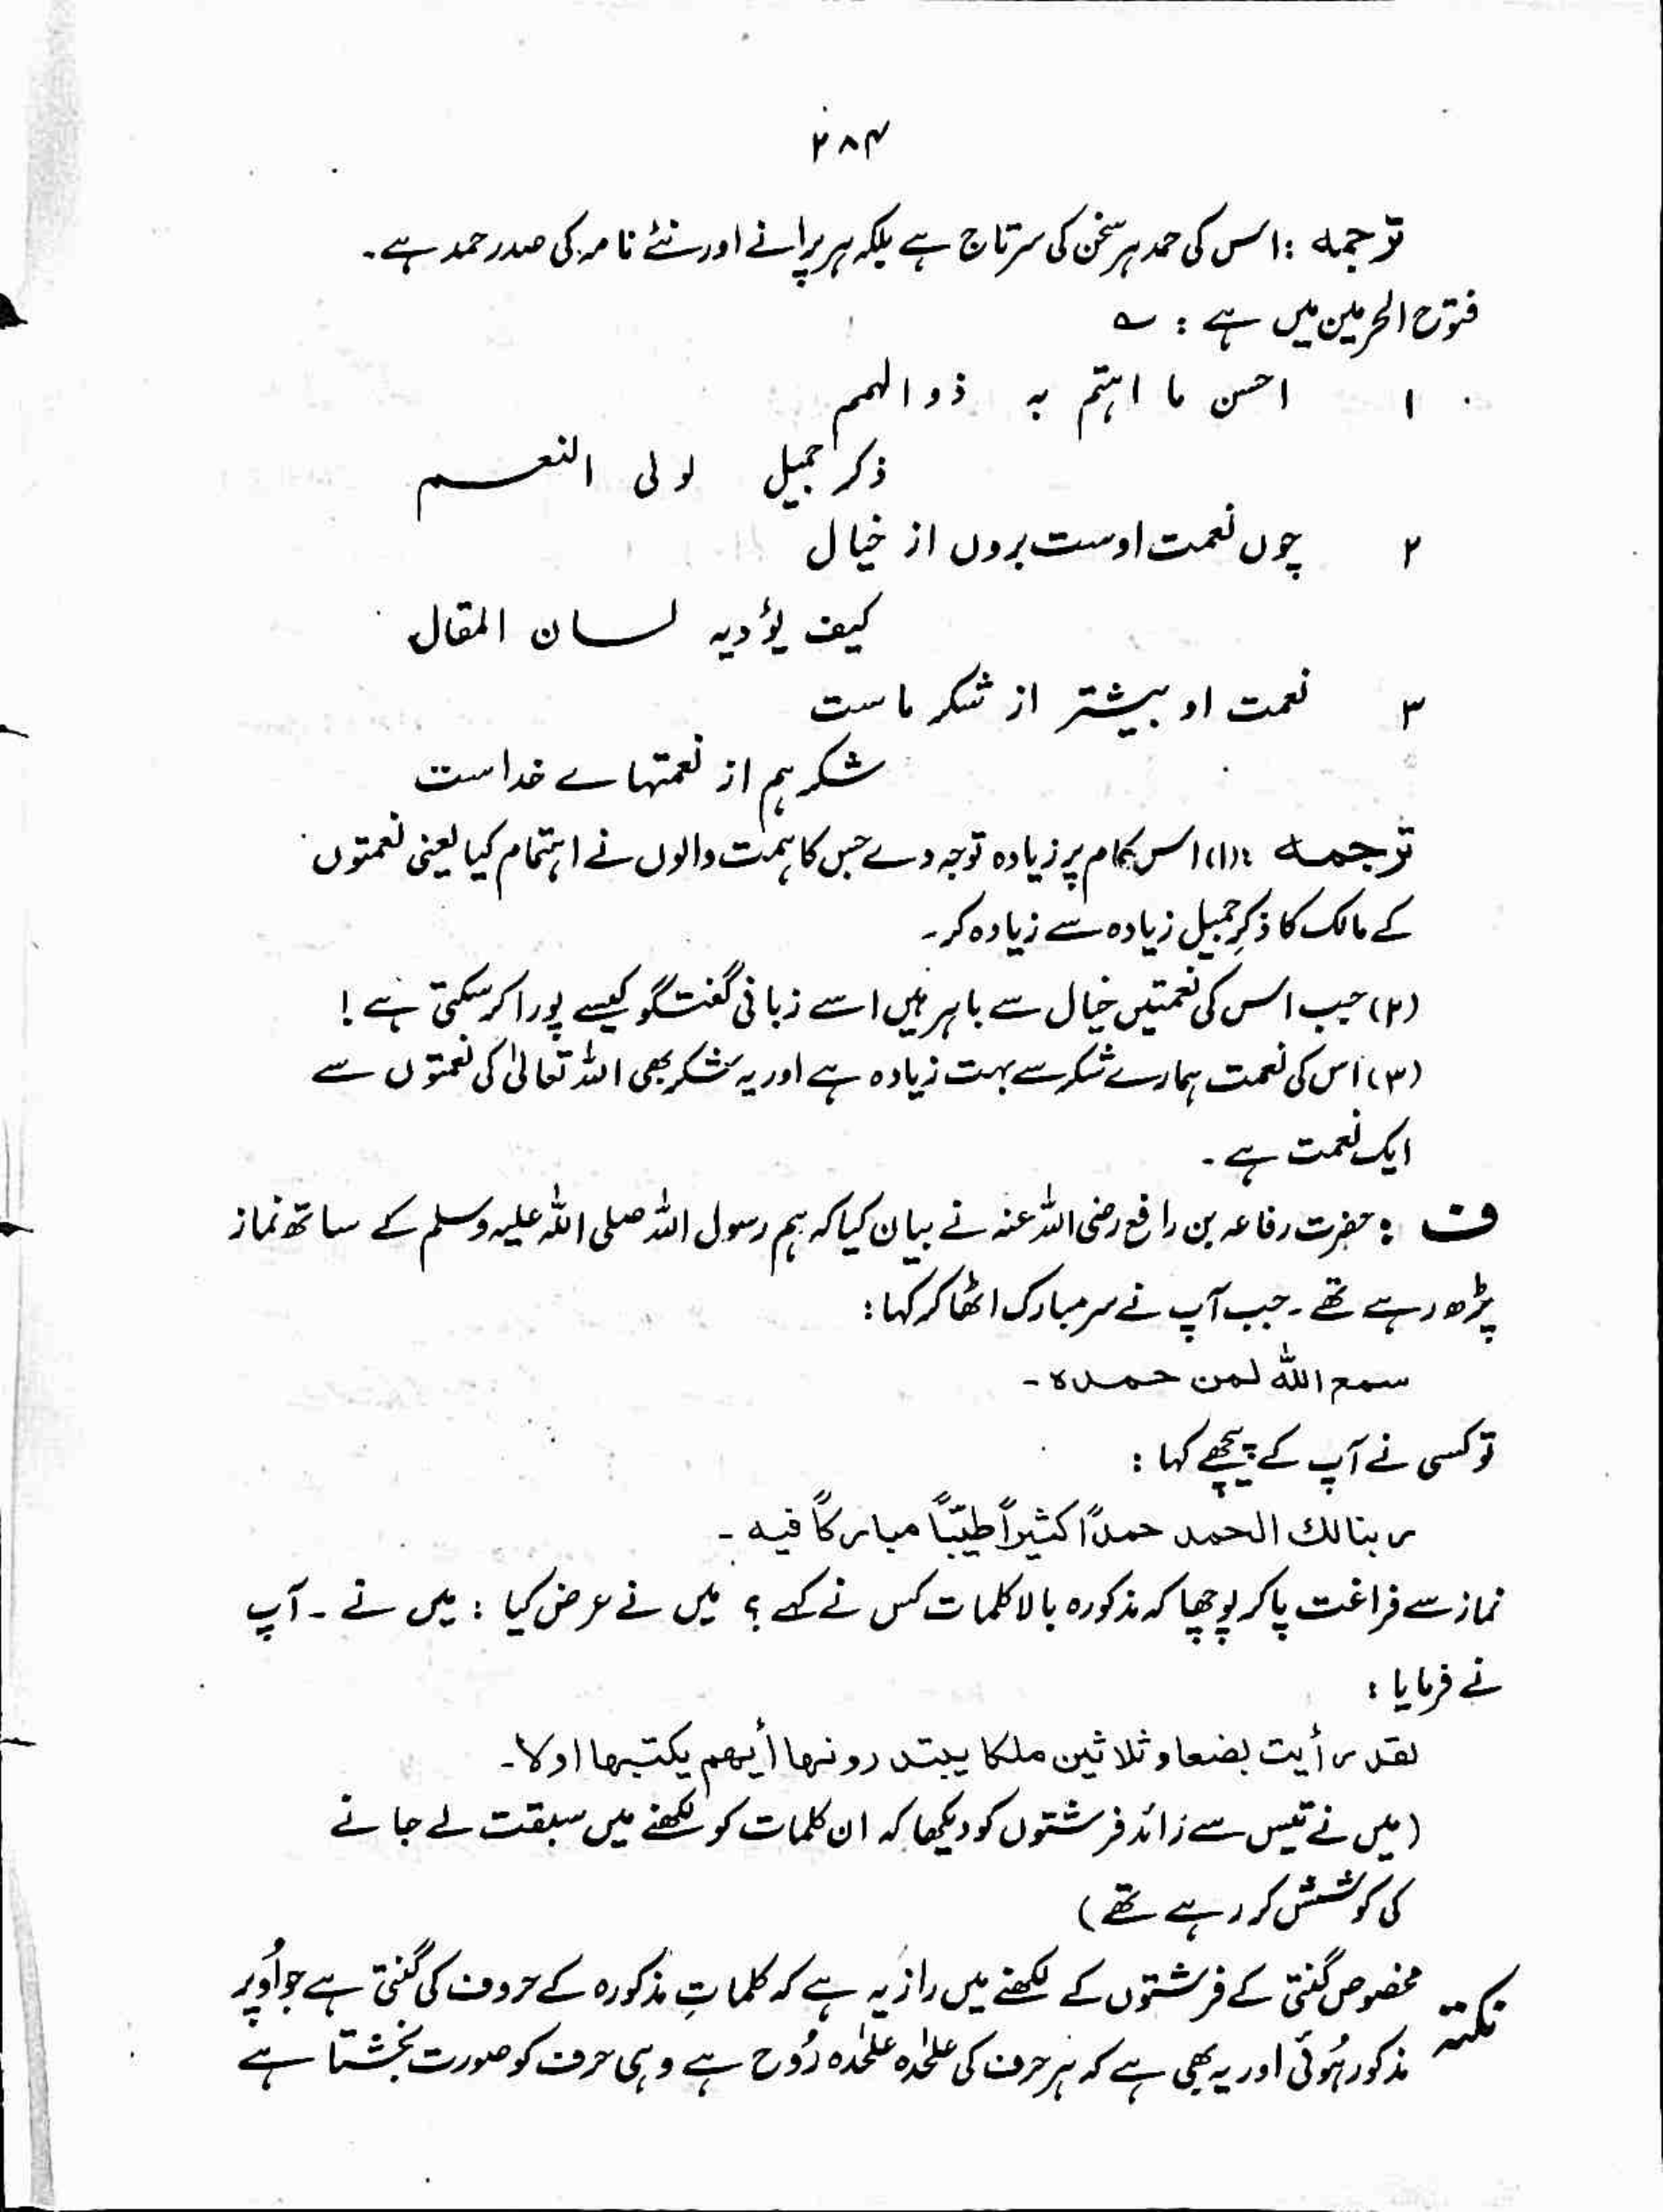 ۲۸۴
ترجمہ : اس کی حمد ہر سخن کی سرتاج ہے بلکہ ہر پرانے اور نئے نامہ کی صدر حمد ہے۔
فتوح الحرمین میں ہے : ؎
۱ احسن ما اہتم بہ ذو الہمم
ذکر جمیل لولی النعم
۲ چوں نعمت اوست بروں از خیال
کیف یؤدیہ لسان المقال
۳ نعمت او بیشتر از شکر ماست
شکر ہم از نعمتہاے خداست
ترجمہ : (۱) اس کام پر زیادہ توجہ دے جس کا ہمت والوں نے اہتمام کیا یعنی نعمتوں
کے مالک کا ذکرِ جمیل زیادہ سے زیادہ کر۔
(۲) جب اس کی نعمتیں خیال سے باہر ہیں اسے زبانی گفتگو کیسے پورا کر سکتی ہے !
(۳) اس کی نعمت ہمارے شکر سے بہت زیادہ ہے اور یہ شکر بھی اللہ تعالیٰ کی نعمتوں سے
ایک نعمت ہے ۔
ف : حضرت رفاعہ بن رافع رضی اللہ عنہ نے بیان کیا کہ ہم رسول اللہ صلی اللہ علیہ وسلم کے ساتھ نماز
پڑھ رہے تھے ۔ جب آپ نے سر مبارک اٹھا کر کہا :
سمع اللہ لمن حمدہ ۔
تو کسی نے آپ کے پیچھے کہا :
ربنا لك الحمد حمدًا کثیراً طیّباً مبارکاً فیہ ۔
نماز سے فراغت پا کر پوچھا کہ مذکورہ بالا کلمات کس نے کہے ؟ میں نے عرض کیا : میں نے ۔ آپ
نے فرمایا :
لقد رأیت بضعا و ثلاثین ملکا یبتدرونہا أیھم یکتبہا اولا ۔
(میں نے تیس سے زائد فرشتوں کو دیکھا کہ ان کلمات کو لکھنے میں سبقت لے جانے
کی کوشش کر رہے تھے)
نکتہ مخصوص گنتی کے فرشتوں کے لکھنے میں راز یہ ہے کہ کلماتِ مذکورہ کے حروف کی گنتی ہے جو اُوپر
مذکور ہُوئی اور یہ بھی ہے کہ ہر حرف کی علٰحدہ علٰحدہ رُوح ہے وہی حرف کو صورت بخشتا ہے